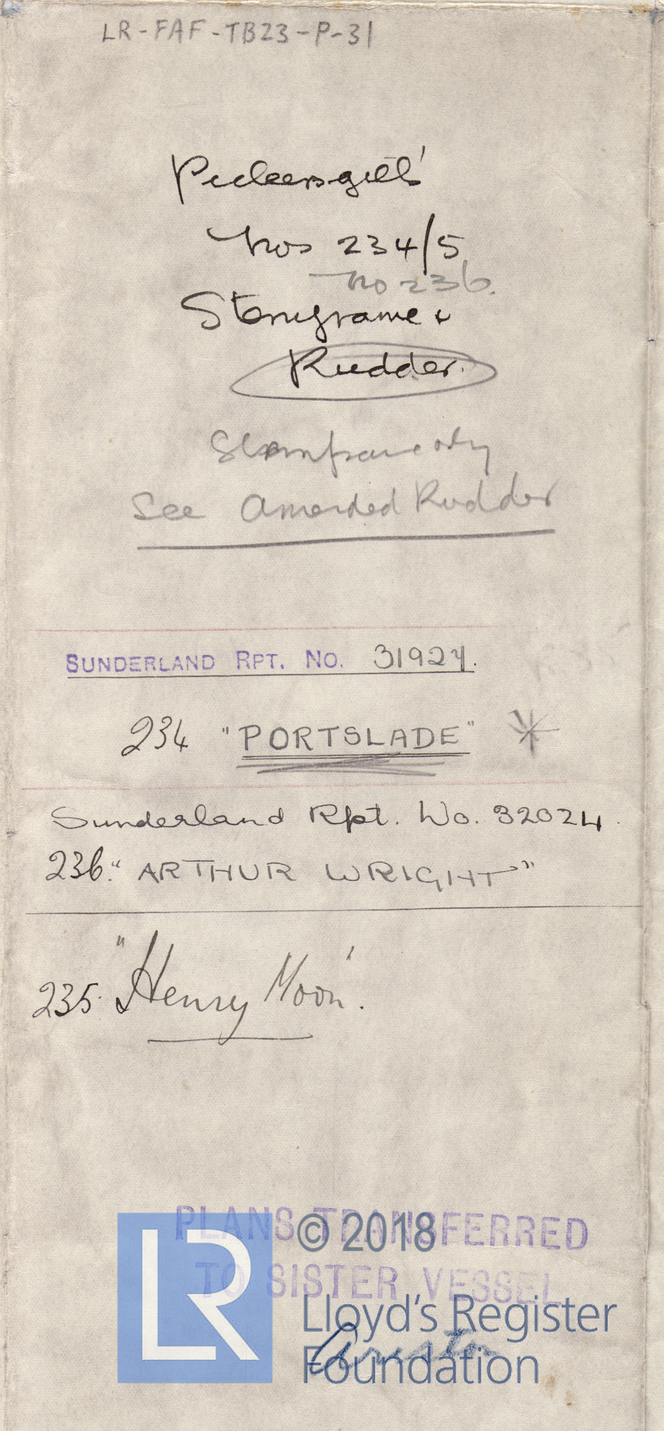 LR-FAF-TB23-P-31
Pickersgill's
Nos 234/5
No 236.
Sternframe &
Rudder.
Sternframe only
See Amended Rudder
SUNDERLAND RPT. NO. 31927.
234 "PORTSLADE" *
Sunderland Rpt. No. 32024.
236. "ARTHUR WRIGHT"
235. "Henry Moon".
PLANS TRANSFERRED
TO SISTER VESSEL
LR © 2018
Lloyd's Register
Foundation